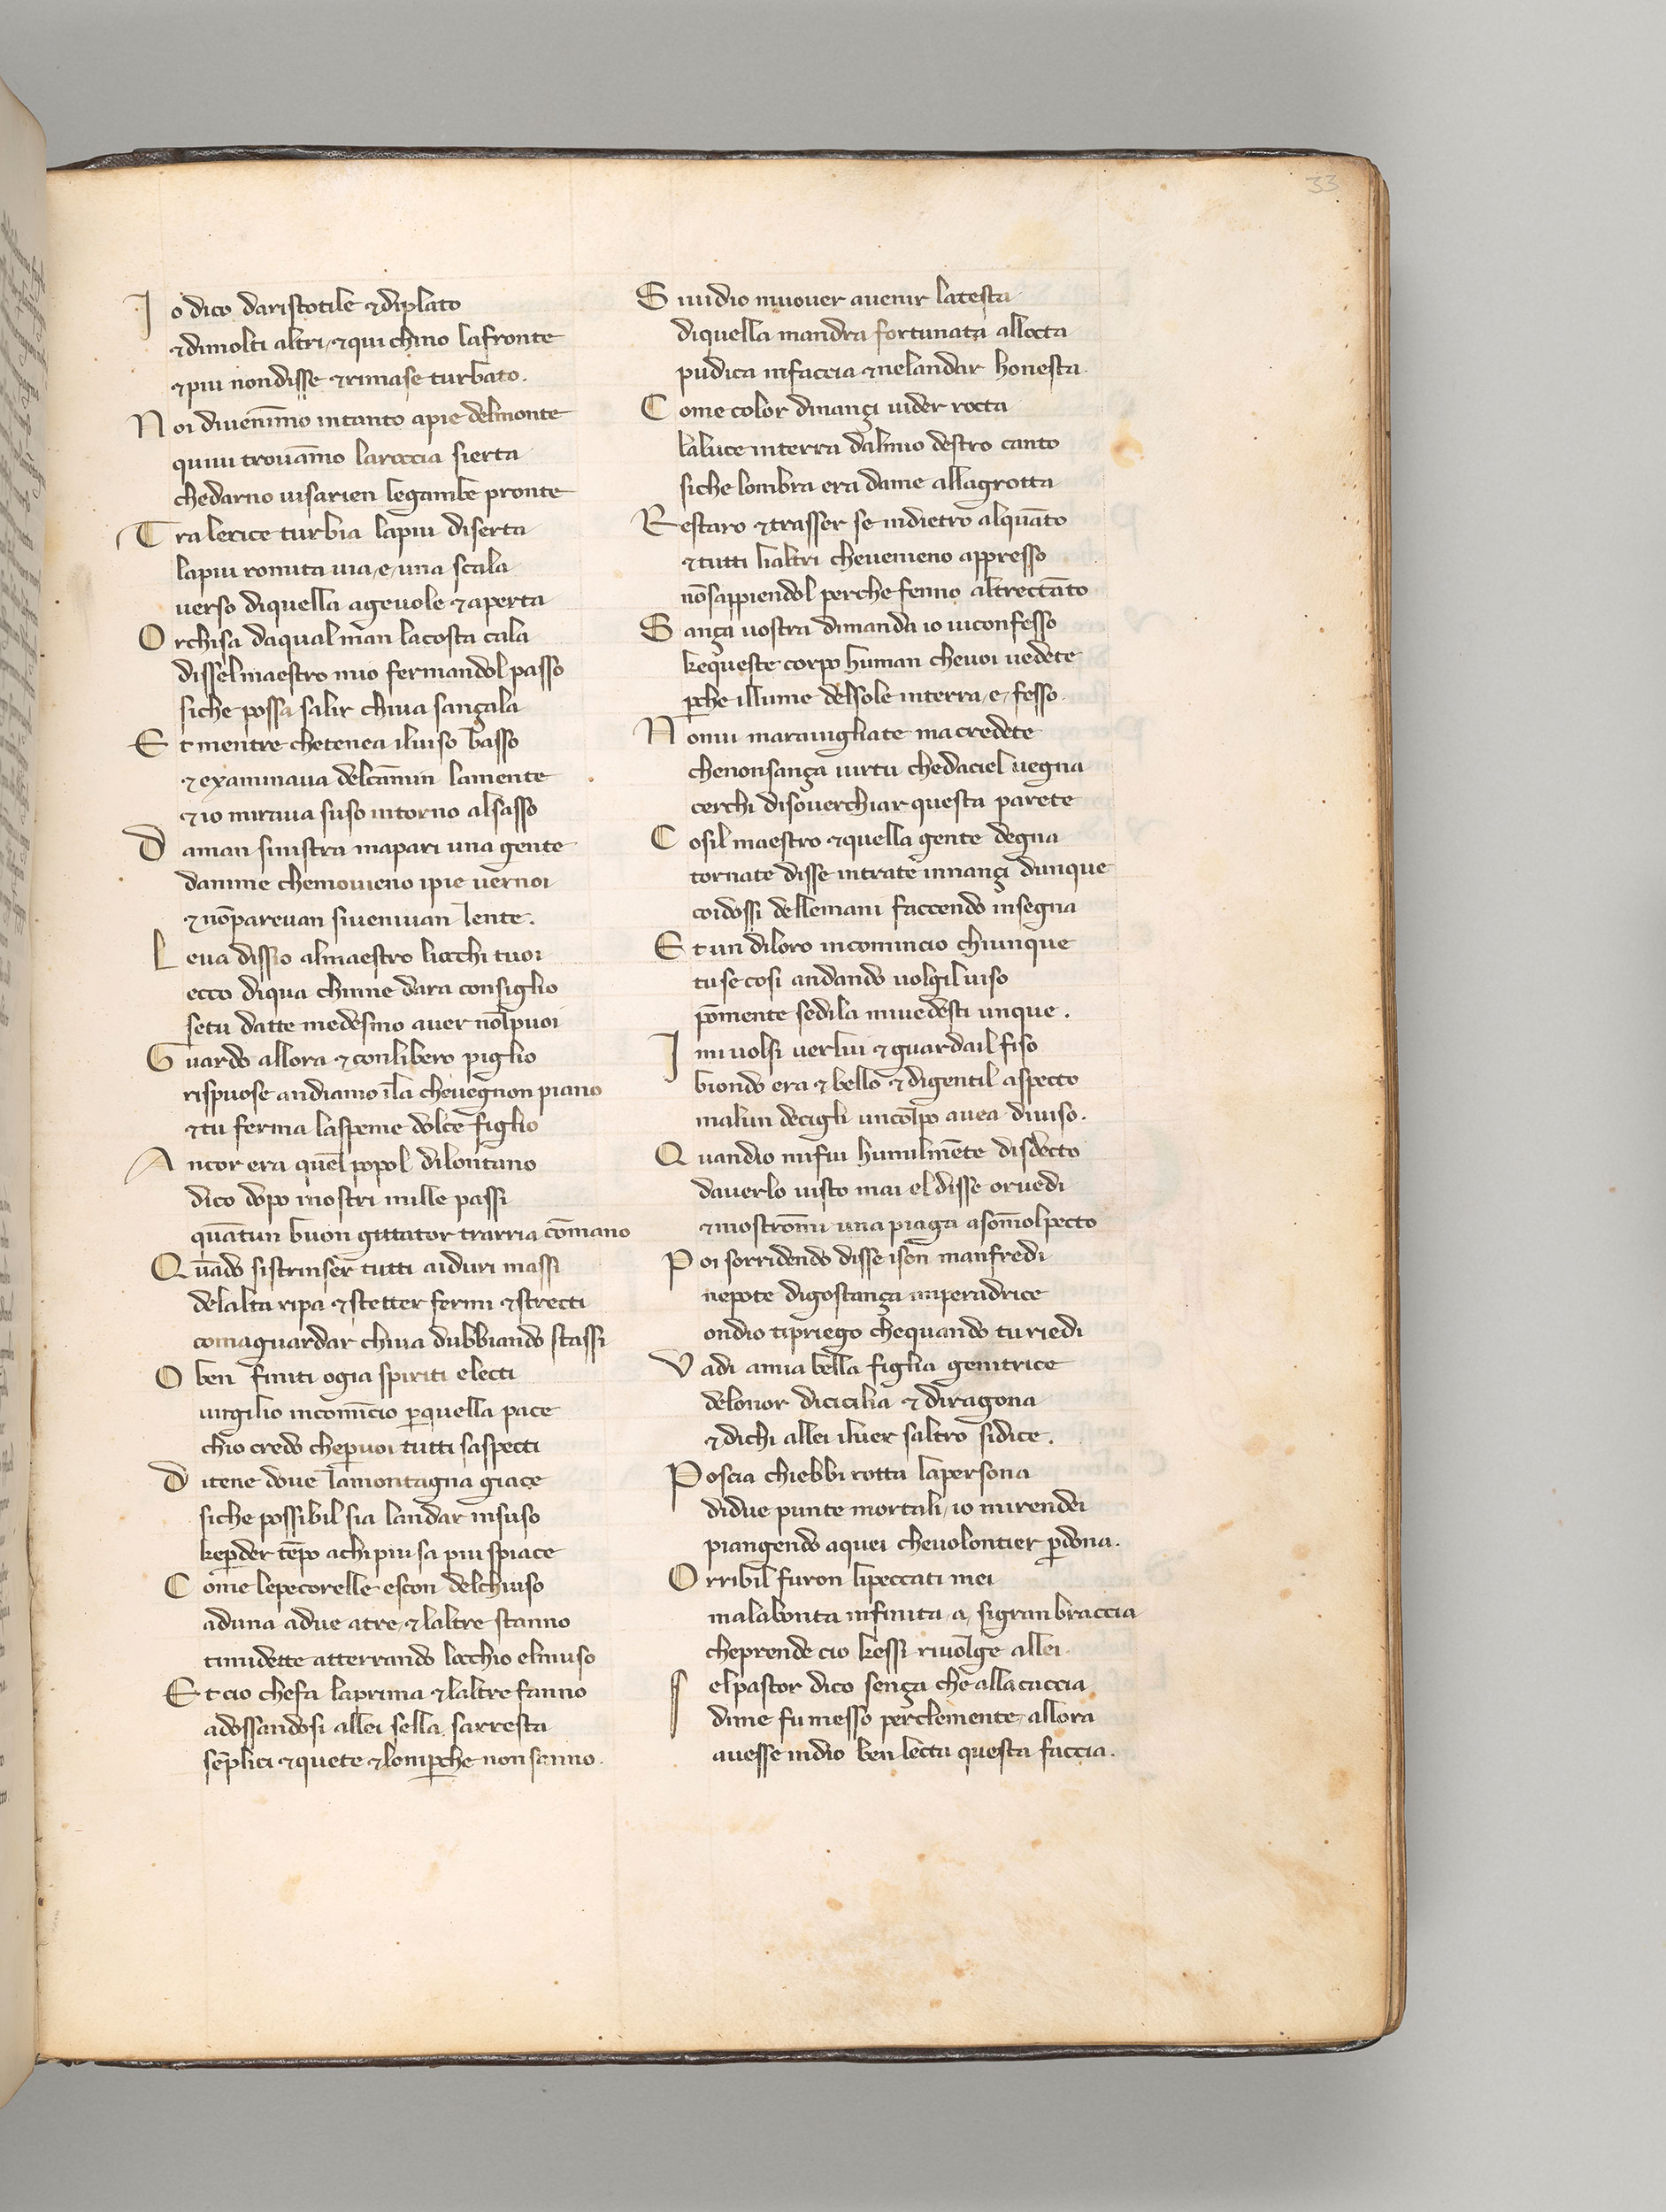 33
Io dico daristotile & diplato
& dimolti altri & qui chino lafronte
& piu nondisse & rimase turbato.
Noi diuenim̄mo intanto apie delmonte
quiui trouam̄o laroccia sierta
chedarno uisarien legambe pronte
Tra lerice turbia lapiu diserta
lapiu romita uia, e, una scala
uerso diquella ageuole & aperta
Orchisa daqual man lacosta cala
disselmaestro mio fermandol passo
siche possa salir chiua sançala
Et mentre chetenea iluiso basso
& examinaua delcam̄in lamente
& io miraua suso intorno alsasso
Daman sinistra mapari una gente
danime chemouieno ipie uernoi
& nōpareuan siueniuan lente.
Leua dissio almaestro liocchi tuoi
ecco diqua chinne dara consiglio
setu datte medesmo auer nolpuoi
Guardo allora & conlibero piglio
rispuose andiamo īla cheuegnon piano
& tu ferma laspeme dolce figlio
Ancor era quel popol dilontano
dico dopo inostri mille passi
quātun buon gittator trarria cōmano
Quādo sistrinser tutti aiduri massi
delalta ripa & stetter fermi & strecti
comaguardar chiua dubbiando stassi
O ben finiti ogia spiriti electi
uirgilio incomīcio ꝑquella pace
chio credo cheꝑuoi tutti saspecti
Ditene doue lamontagna giace
siche possibil sia landar insuso
keꝑder tēpo achi piu sa piu spiace
Come lepecorelle escon delchiuso
aduna adue atre, & laltre stanno
timidette atterrando locchio elmuso
Et cio chefa laprima & laltre fanno
adossandosi allei sella sarresta
sēplici & quete & lomꝑche non sanno.
Siuidio muouer auenir latesta
diquella mandra fortunata allocta
pudica infaccia & nelandar honesta.
Come color dinançi uider rocta
laluce interra dalmio destro canto
siche lombra era dame allagrotta
Restaro & trasser se indietro alquāto
& tutti lialtri cheuenieno appresso
nōsappiendol perche fenno altrectāto
Sança uostra dimanda io uiconfesso
kequeste corpo human cheuoi uedete
ꝑche illume delsole interra, e, fesso.
Nonui marauigliate macredete
chenonsança uirtu chedaciel uegna
cerchi disouerchiar questa parete
Cosil maestro & quella gente degna
tornate disse intrate innançi dunque
coidossi dellemani faccendo insegna
Et un diloro incomincio chiunque
tuse cosi andando uolgiluiso
pōmente sedila miuedesti unque.
Imi uolsi uerlui & guardail fiso
biondo era & bello & digentil aspecto
malun decigli uncolpo auea diuiso.
Quandio mifui humilmēte disdecto
dauerlo uisto mai el disse oruedi
& mostrom̄i una piaga asom̄olpecto
Poi sorridendo disse ison manfredi
nepote digostança imperadrice
ondio tipriego chequando turiedi
Vadi amia bella figlia genitrice
delonor dicicilia & diragona
& dichi allei iluer saltro sidice.
Poscia chiebbi rotta lapersona
didue punte mortali, io mirendei
piangendo aquei cheuolontier ꝑdona.
Orribil furon lipeccati miei
malabonta infinita, a, sigran braccia
cheprende cio kessi riuolge allei.
Selpastor dico sença che allacaccia
dime fu messo perclemente allora
auesse indio ben lecta questa faccia.